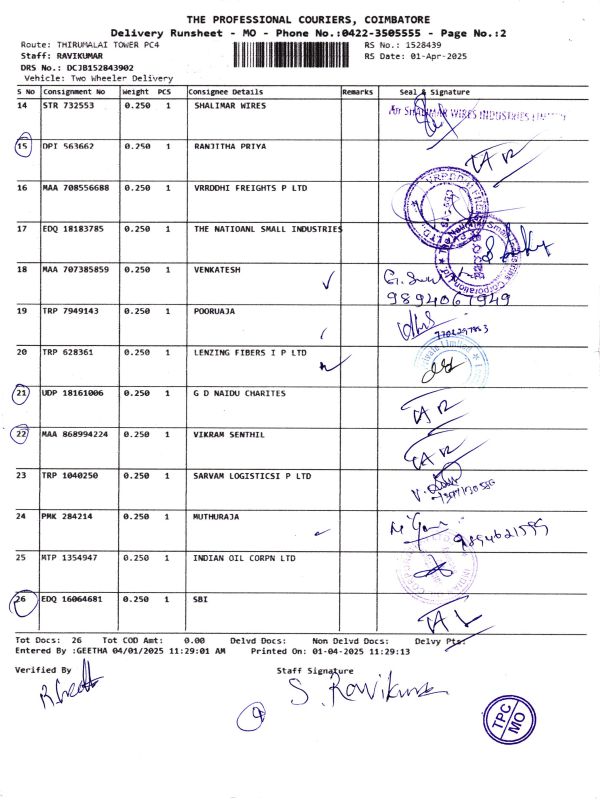 THE PROFESSIONAL COURIERS, COIMBATORE
Delivery Runsheet - MO - Phone No.:0422-3505555 - Page No.:2
Route: THIRUMALAI TOWER PC4
RS No.: 1528439
Staff: RAVIKUMAR
RS Date: 01-Apr-2025
DRS No.: DCJB152843902
Vehicle: Two Wheeler Delivery
S No Consignment No Weight PCS Consignee Details Remarks Seal & Signature
14 STR 732553 0.250 1 SHALIMAR WIRES
For SHALIMAR WIRES INDUSTRIES LIMITED
15 DPI 563662 0.250 1 RANJITHA PRIYA
16 MAA 708556688 0.250 1 VRRDDHI FREIGHTS P LTD
17 EDQ 18183785 0.250 1 THE NATIOANL SMALL INDUSTRIES
18 MAA 707385859 0.250 1 VENKATESH
9894067949
19 TRP 7949143 0.250 1 POORUAJA
20 TRP 628361 0.250 1 LENZING FIBERS I P LTD
21 UDP 18161006 0.250 1 G D NAIDU CHARITES
22 MAA 868994224 0.250 1 VIKRAM SENTHIL
23 TRP 1040250 0.250 1 SARVAM LOGISTICSI P LTD
24 PMK 284214 0.250 1 MUTHURAJA
25 MTP 1354947 0.250 1 INDIAN OIL CORPN LTD
26 EDQ 16064681 0.250 1 SBI
Tot Docs: 26 Tot COD Amt: 0.00 Delvd Docs: Non Delvd Docs: Delvy Pts:
Entered By :GEETHA 04/01/2025 11:29:01 AM Printed On: 01-04-2025 11:29:13
Verified By
Staff Signature
S. Ravikumar
TPC
MO